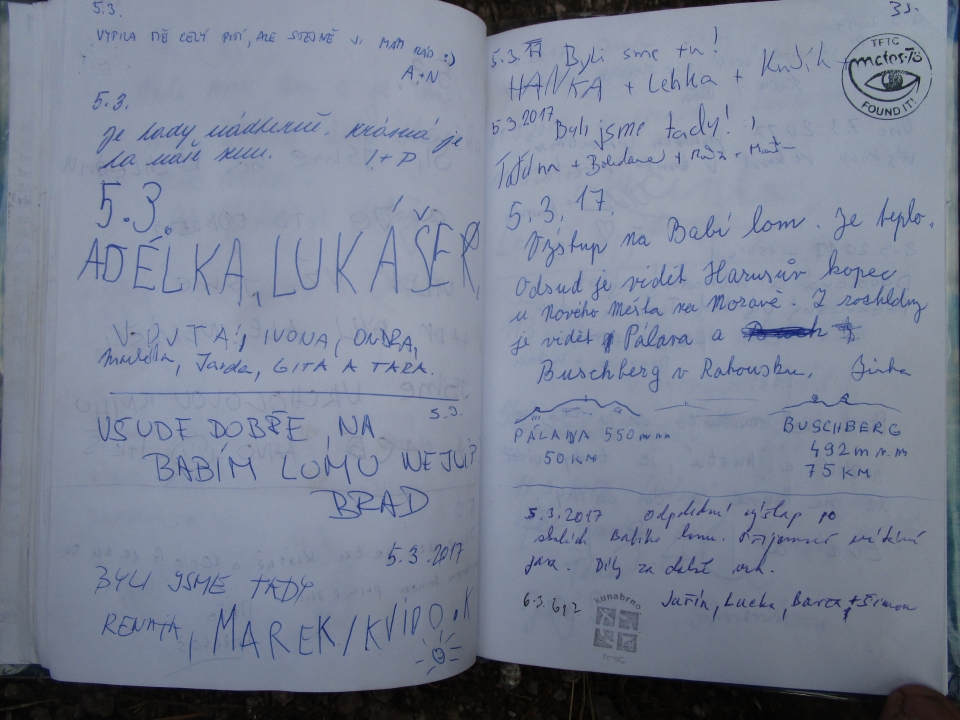 5.3.
VYPILA MĚ CELÝ PITÍ, ALE STEJNĚ JI MÁM RÁD :)
A+N
5.3.
Je tady nádherně. Krásná je
ta naše zem.
I+P
5.3.
ADÉLKA, LUKÁŠEK,
VOJTA, IVONA, ONDRA,
Markéta, Jarda, GITA A TARA.
5.3.
VŠUDE DOBŘE, NA
BABÍM LOMU NEJLÍP
BRAD
5.3.2017
BYLI JSME TADY
RENATA, MAREK/KVIDO.K
33.
5.3.17 Byli sme tu!
HANKA + Lehka + Kudík
TFTC
FOUND IT!
5.3.2017 Byli jsme tady! :)
Taťána + Bohdana +
5.3.17.
Výstup na Babí lom. Je teplo.
Odsud je vidět Harusův kopec
u Nového Města na Moravě. Z rozhledny
je vidět Pálava a
Buschberg v Rakousku. Jirka
PÁLAVA 550 mnm
50 KM
BUSCHBERG
492 m n.m
75 KM
5.3.2017 Odpolední výstup po
skalách Babího lomu. Příjemné
jara. Díky za další vrch.
Jařin, Lucka, Barča + Šimon
6.3.
kunabrno